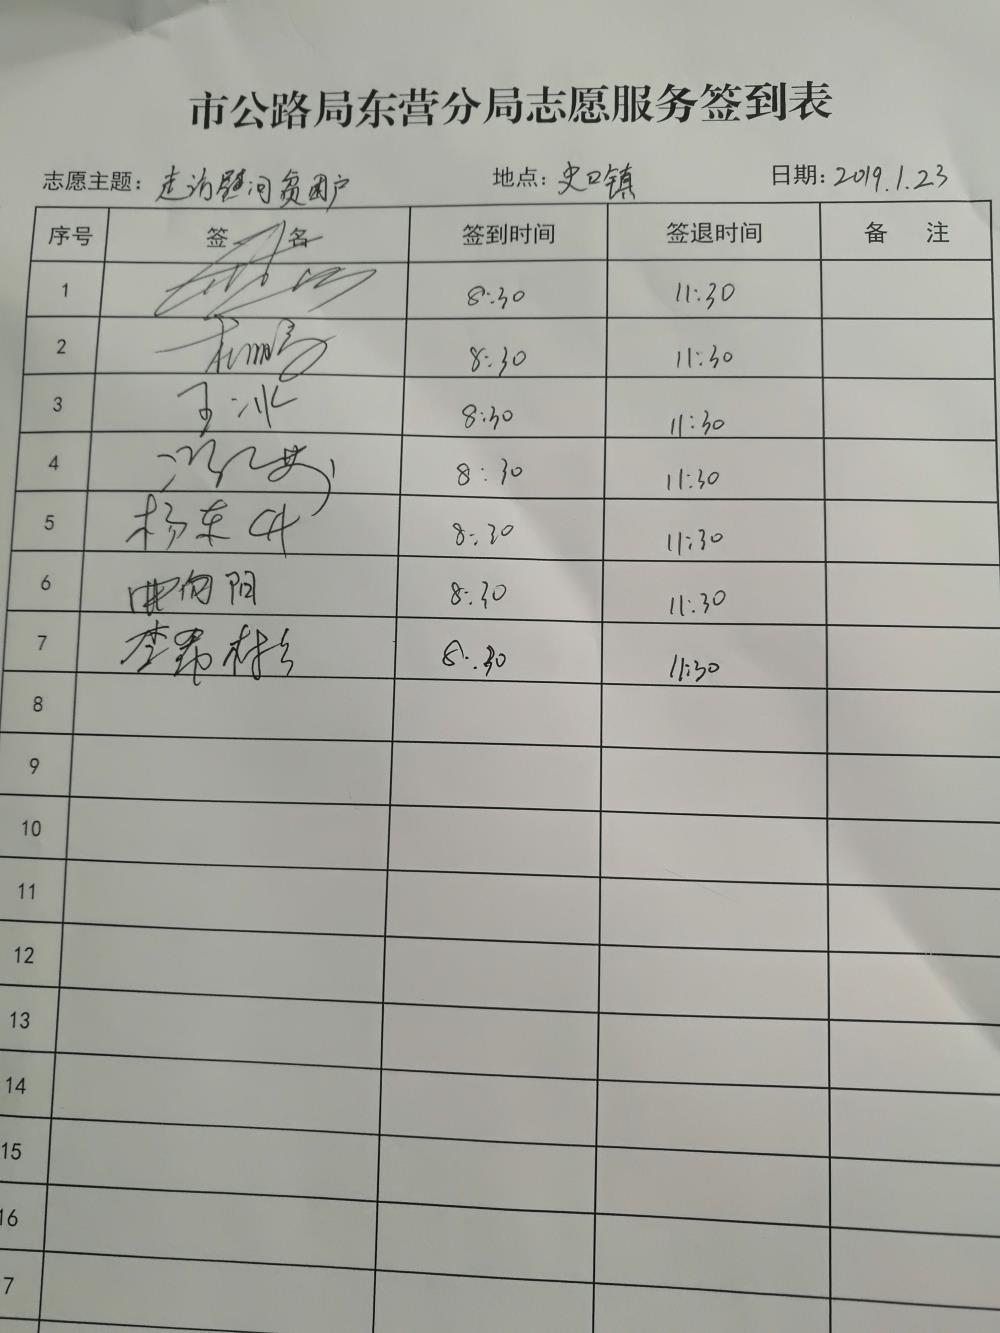 市公路局东营分局志愿服务签到表
志愿主题：走访慰问贫困户 地点：史口镇 日期：2019.1.23
序号 签名 签到时间 签退时间 备注
1 8:30 11:30
2 8:30 11:30
3 王冰 8:30 11:30
4 8:30 11:30
5 杨东 8:30 11:30
6 曲向阳 8:30 11:30
7 李 8:30 11:30
8
9
10
11
12
13
14
15
16
7